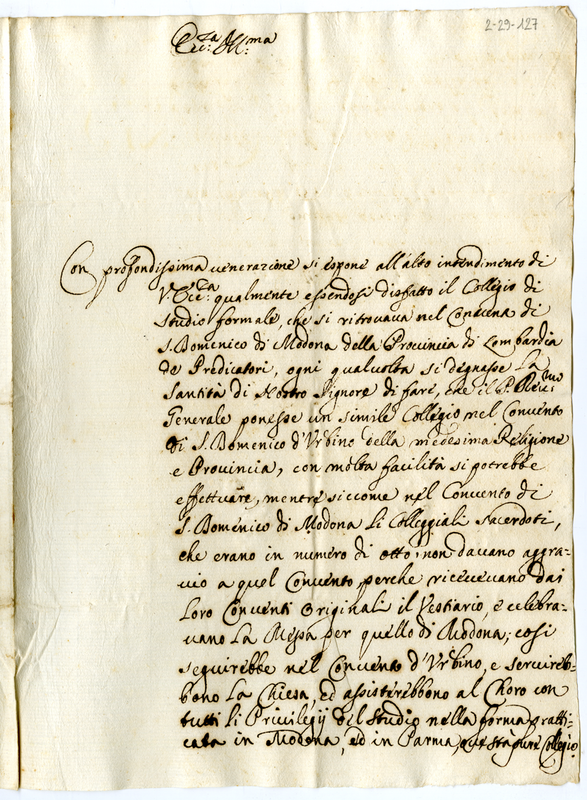 2-29-127
Ecc:za Ill:ma
Con profondissima venerazione si espone all'alto intendimento di
V. Ecc:za qualmente essendosi disfatto il Collegio di
Studio formale, che si ritrovava nel Convento di
S. Domenico di Modona della Provincia di Lombardia
de Predicatori, ogni qualvolta si degnasse la
Santità di Nostro Signore di fare, che il P. Rev:mo
Generale ponesse un simile Collegio nel Convento
di S. Domenico d'Urbino della medesima Religione
e Provincia, con molta facilità si potrebbe
effettuare, mentre siccome nel Convento di
S. Domenico di Modona li Colleggiali Sacerdoti,
che erano in numero di otto, non davano aggra-
vio a quel Convento, perche ricevevano dai
Loro Conventi Originali il Vestiario, e celebra-
vano La Messa per quello di Modona; così
seguirebbe nel Convento d'Urbino, e servireb-
bono La Chiesa, ed assisterebbono al Choro con
tutti li Privilegij del Studio nella forma pratti-
cata in Modona, ed in Parma, Collegio